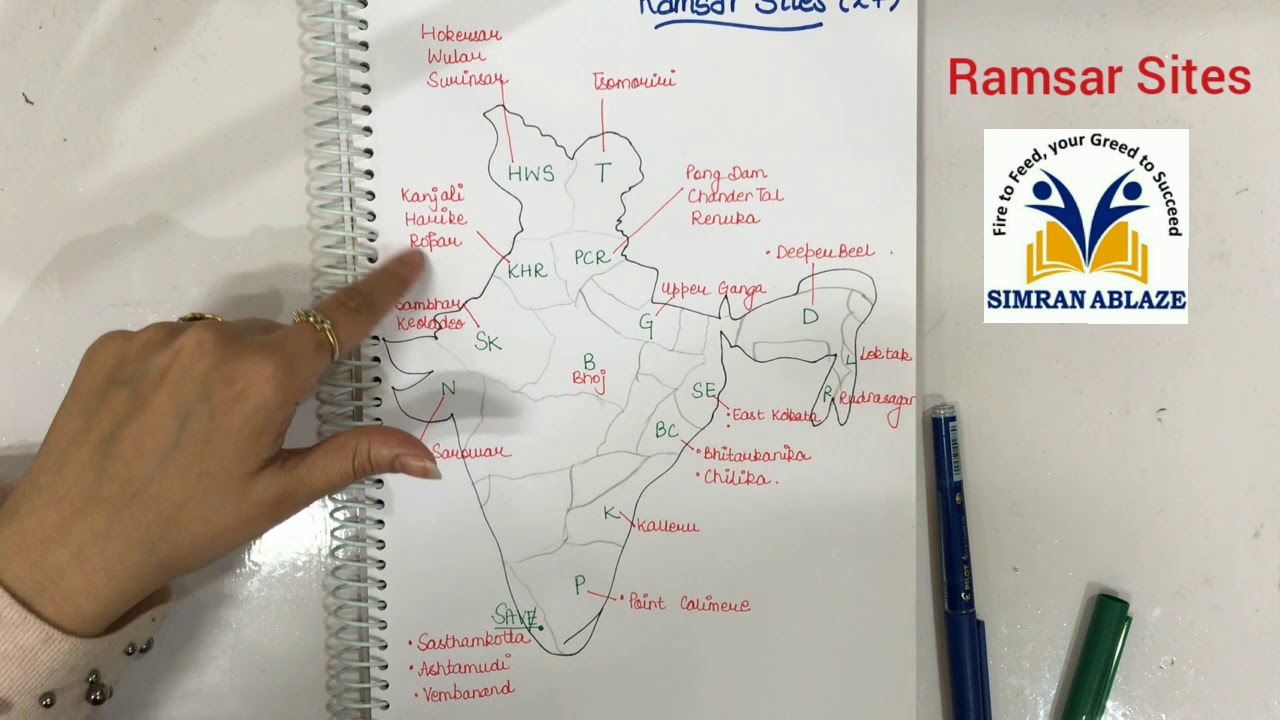 Ramsar Sites (27)
Hokersar
Wular
Surinsar
Tsomoriri
HWS
T
Kanjali
Harike
Ropar
Pong Dam
Chander Tal
Renuka
KHR
PCR
• Deepeu Beel
Upper Ganga
Sambhar
Keoladeo
SK
G
D
B
Bhoj
Loktak
L
N
SE
R
Rudrasagar
• East Kolkata
Sarowar
BC
• Bhitarkanika
• Chilika.
K
Kalleru
P
• Point Calimere
SAVE
• Sasthamkotta
• Ashtamudi
• Vembanand
Ramsar Sites
Fire to Feed, your Greed to Succeed
SIMRAN ABLAZE
PILOT